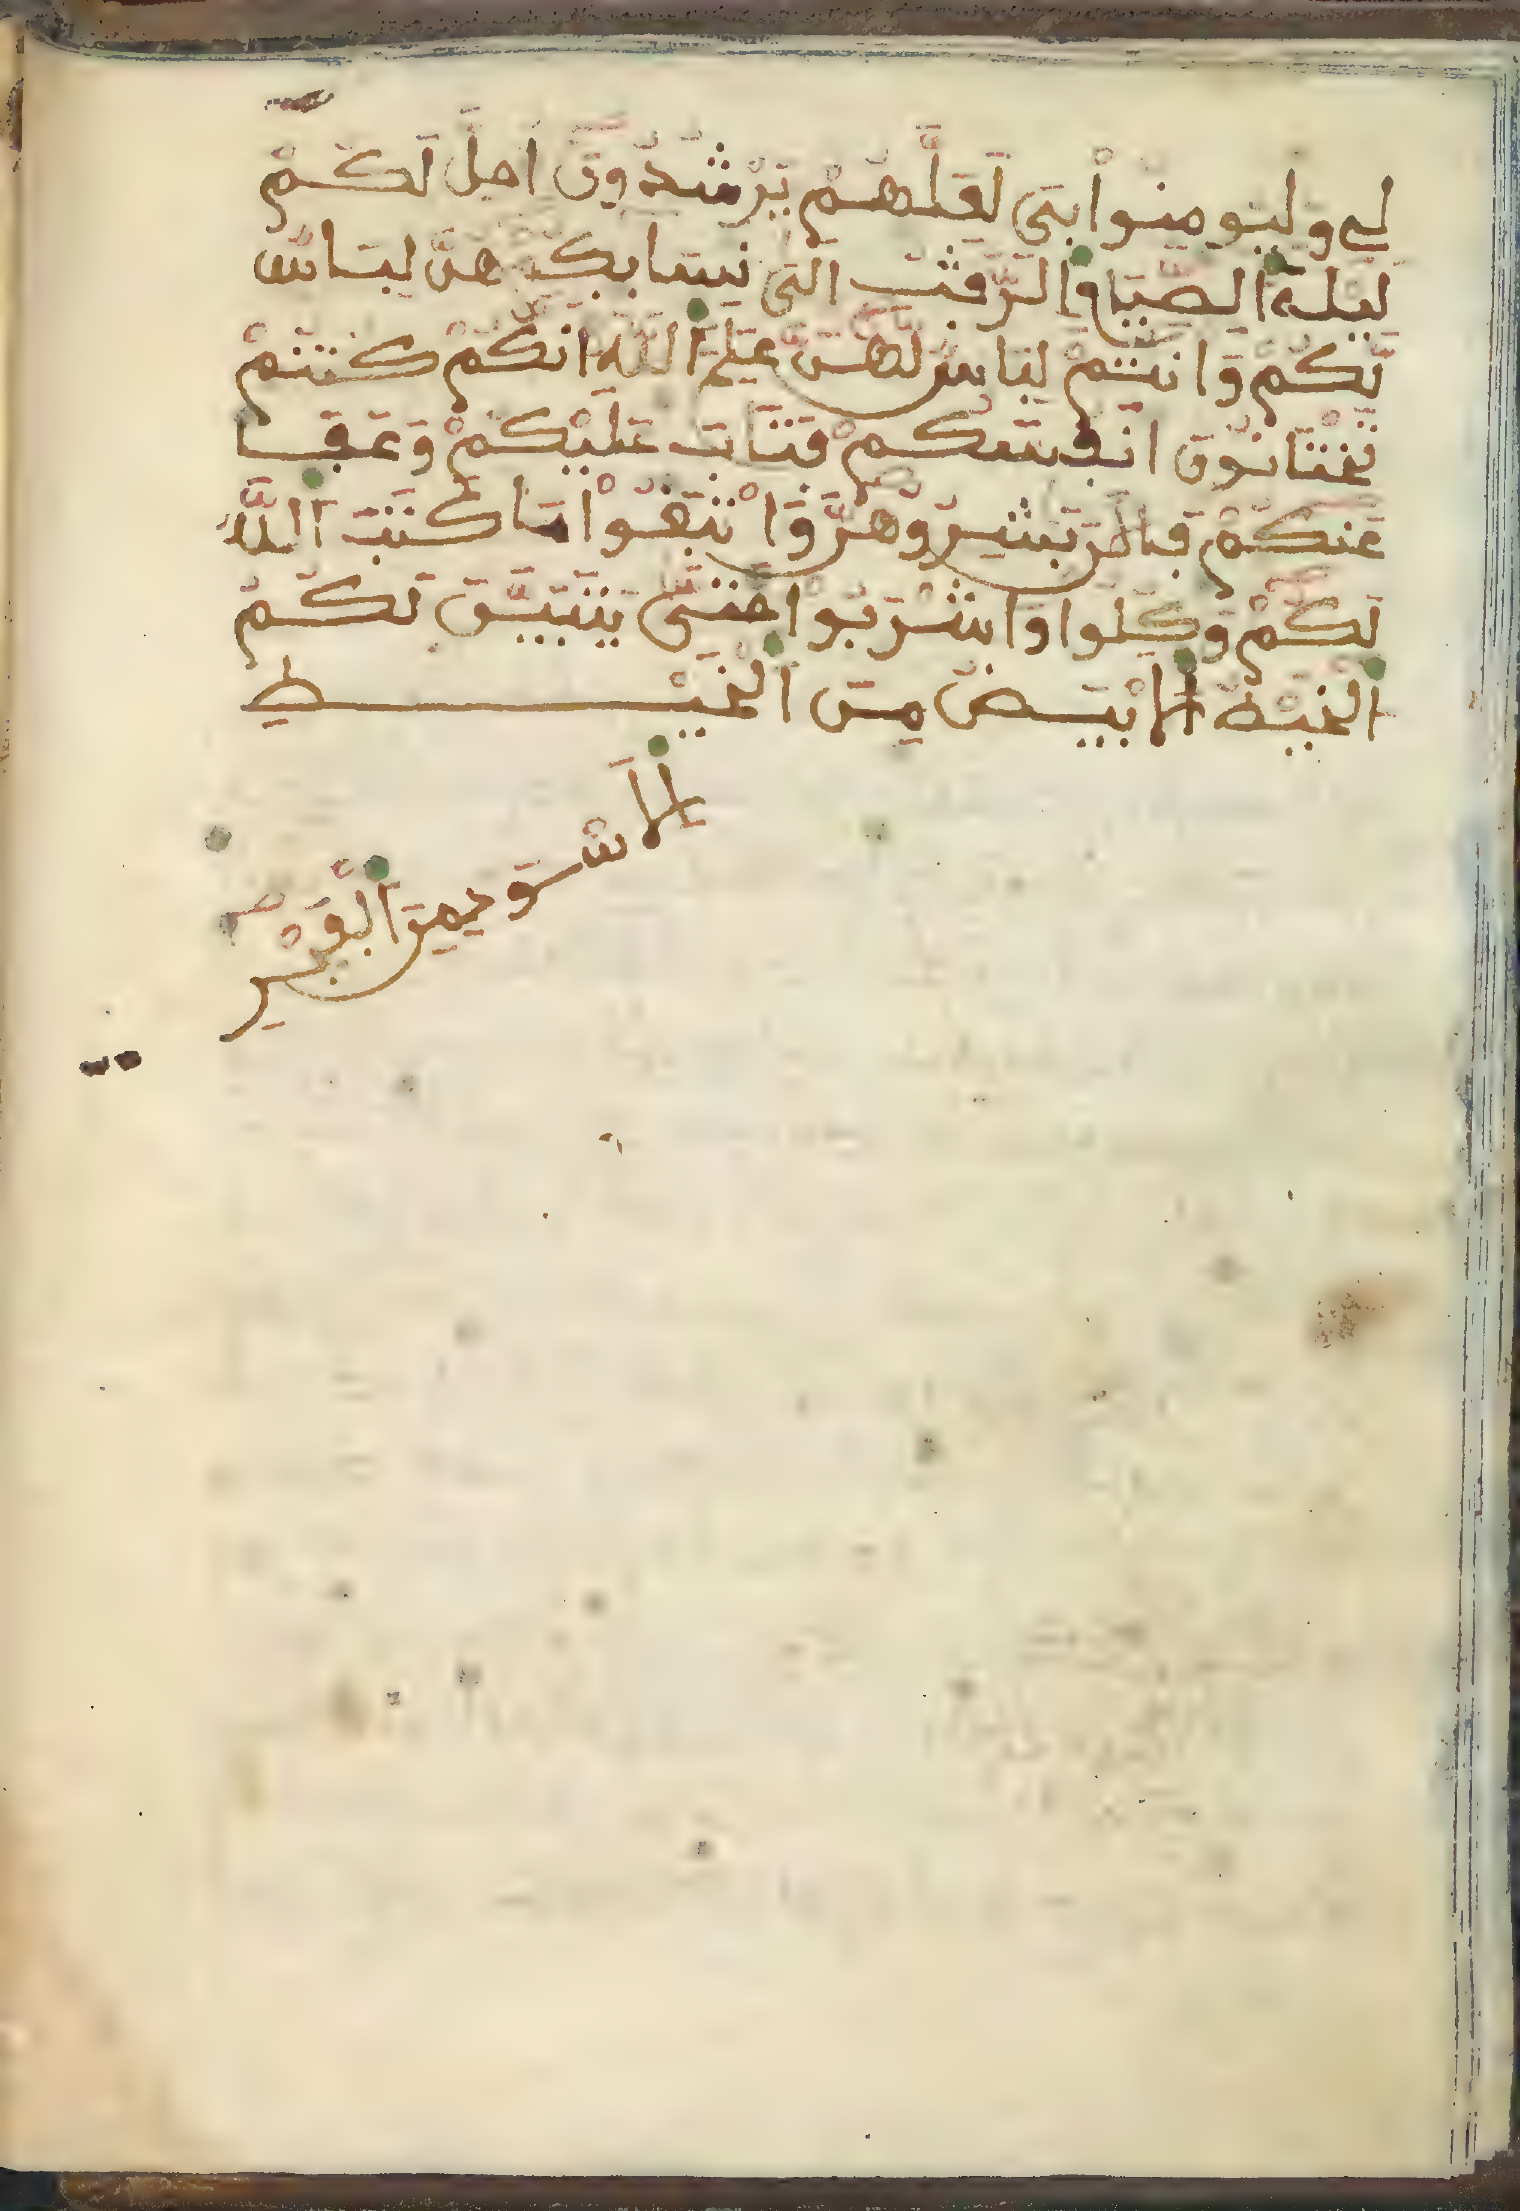 لي وليومنوا بي لعلهم يرشدون احل لكم
ليلة الصيام الرفث الى نسايكم هن لباس
لكم وانتم لباس لهن علم الله انكم كنتم
تختانون انفسكم فتاب عليكم وعفا
عنكم فالن بشروهن وابتغوا ما كتب الله
لكم وكلوا واشربوا حتى يتبين لكم
الخيط الابيض من الخيط
الاسود من الفجر